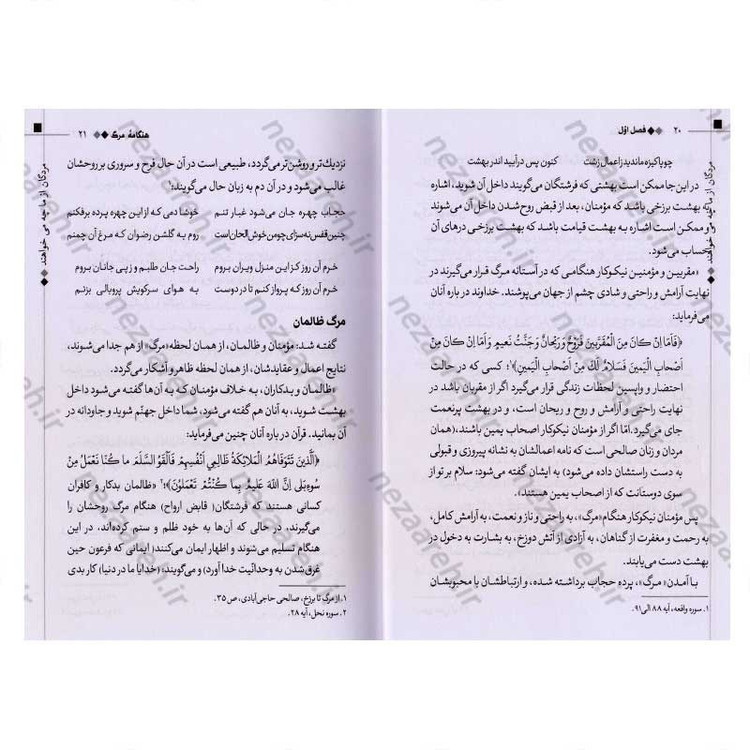 ۲۰ فصل اوّل
چو پاکیزه ماندید ز اعمال زشت کنون پس درآیید اندر بهشت
در این جا ممکن است بهشتی که فرشتگان می‌گویند داخل آن شوید، اشاره
به بهشت برزخی باشد که مؤمنان، بعد از قبض روح شدن داخل آن می‌شوند
و ممکن است اشاره به بهشت قیامت باشد که بهشت برزخی درهای آن
حساب می‌شود.
«مقربین و مؤمنین نیکوکار هنگامی که در آستانه مرگ قرار می‌گیرند در
نهایت آرامش و راحتی و شادی چشم از جهان می‌پوشند. خداوند در باره آنان
می‌فرماید:
﴿فَأَمَّا إِنْ كَانَ مِنَ الْمُقَرَّبِينَ فَرَوْحٌ وَرَيْحَانٌ وَجَنَّتُ نَعِيمٍ وَأَمَّا إِنْ كَانَ مِنْ
أَصْحَابِ الْيَمِينِ فَسَلَامٌ لَكَ مِنْ أَصْحَابِ الْيَمِينِ﴾؛۱ کسی که در حالت
احتضار و واپسین لحظات زندگی قرار می‌گیرد اگر از مقربان باشد در
نهایت راحتی و آرامش و روح و ریحان است، و در بهشت پرنعمت
جای می‌گیرد. امّا اگر از مؤمنان نیکوکار اصحاب یمین باشند، (همان
مردان و زنان صالحی که نامه اعمالشان به نشانه پیروزی و قبولی
به دست راستشان داده می‌شود) به ایشان گفته می‌شود: سلام بر تو از
سوی دوستانت که از اصحاب یمین هستند».
پس مؤمنان نیکوکار هنگام «مرگ»، به راحتی و ناز و نعمت، به آرامش کامل،
به رحمت و مغفرت از گناهان، به آزادی از آتش دوزخ، به بشارت به دخول در
بهشت دست می‌یابند.
با آمدن «مرگ»، پرده حجاب برداشته شده، و ارتباطشان با محبوبشان
۱. سوره واقعه، آیه ۸۸ الی ۹۱.
مردگان از ما چه می خواهند
هنگامهٔ مرگ ۲۱
نزدیک‌تر و روشن‌تر می‌گردد، طبیعی است در آن حال فرح و سروری بر روحشان
غالب می‌شود و در آن دم به زبان حال می‌گویند:۱
حجاب چهره جان می‌شود غبار تنم خوشا دمی که از این چهره پرده برفکنم
چنین قفس نه سزای چو من خوش الحان است روم به گلشن رضوان که مرغ آن چمنم
خرم آن روز کز این منزل ویران بروم راحت جان طلبم و ز پی جانان بروم
خرم آن روز که پرواز کنم تا در دوست به هوای سر کویش پر و بالی بزنم
مرگ ظالمان
گفته شد: مؤمنان و ظالمان، از همان لحظه «مرگ» از هم جدا می‌شوند،
نتایج اعمال و عقایدشان، از همان لحظه ظاهر و آشکار می‌گردد.
«ظالمان و بدکاران، به خلاف مؤمنان که به آن‌ها گفته می‌شود داخل
بهشت شوید، به آنان هم گفته می‌شود، شما داخل جهنّم شوید و جاودانه در
آن بمانید. قرآن در باره آنان چنین می‌فرماید:
﴿الَّذِينَ تَتَوَفَّاهُمُ الْمَلَائِكَةُ ظَالِمِي أَنْفُسِهِمْ فَأَلْقَوُا السَّلَمَ مَا كُنَّا نَعْمَلُ مِنْ
سُوءٍ بَلَى إِنَّ اللَّهَ عَلِيمٌ بِمَا كُنْتُمْ تَعْمَلُونَ﴾؛۲ «ظالمان بدکار و کافران
کسانی هستند که فرشتگان( قابض ارواح) هنگام مرگ روحشان را
می‌گیرند، در حالی که آن‌ها به خود ظلم و ستم کرده‌اند، در این
هنگام تسلیم می‌شوند و اظهار ایمان می‌کنند( ایمانی که فرعون حین
غرق شدن به وحدانیت خدا آورد) و می‌گویند: (خدایا ما در دنیا) کار بدی
۱. از مرگ تا برزخ، صالحی حاجی‌آبادی، ص ۳۵.
۲. سوره نحل، آیه ۲۸.
مردگان از ما چه می خواهند
nezaareh.ir